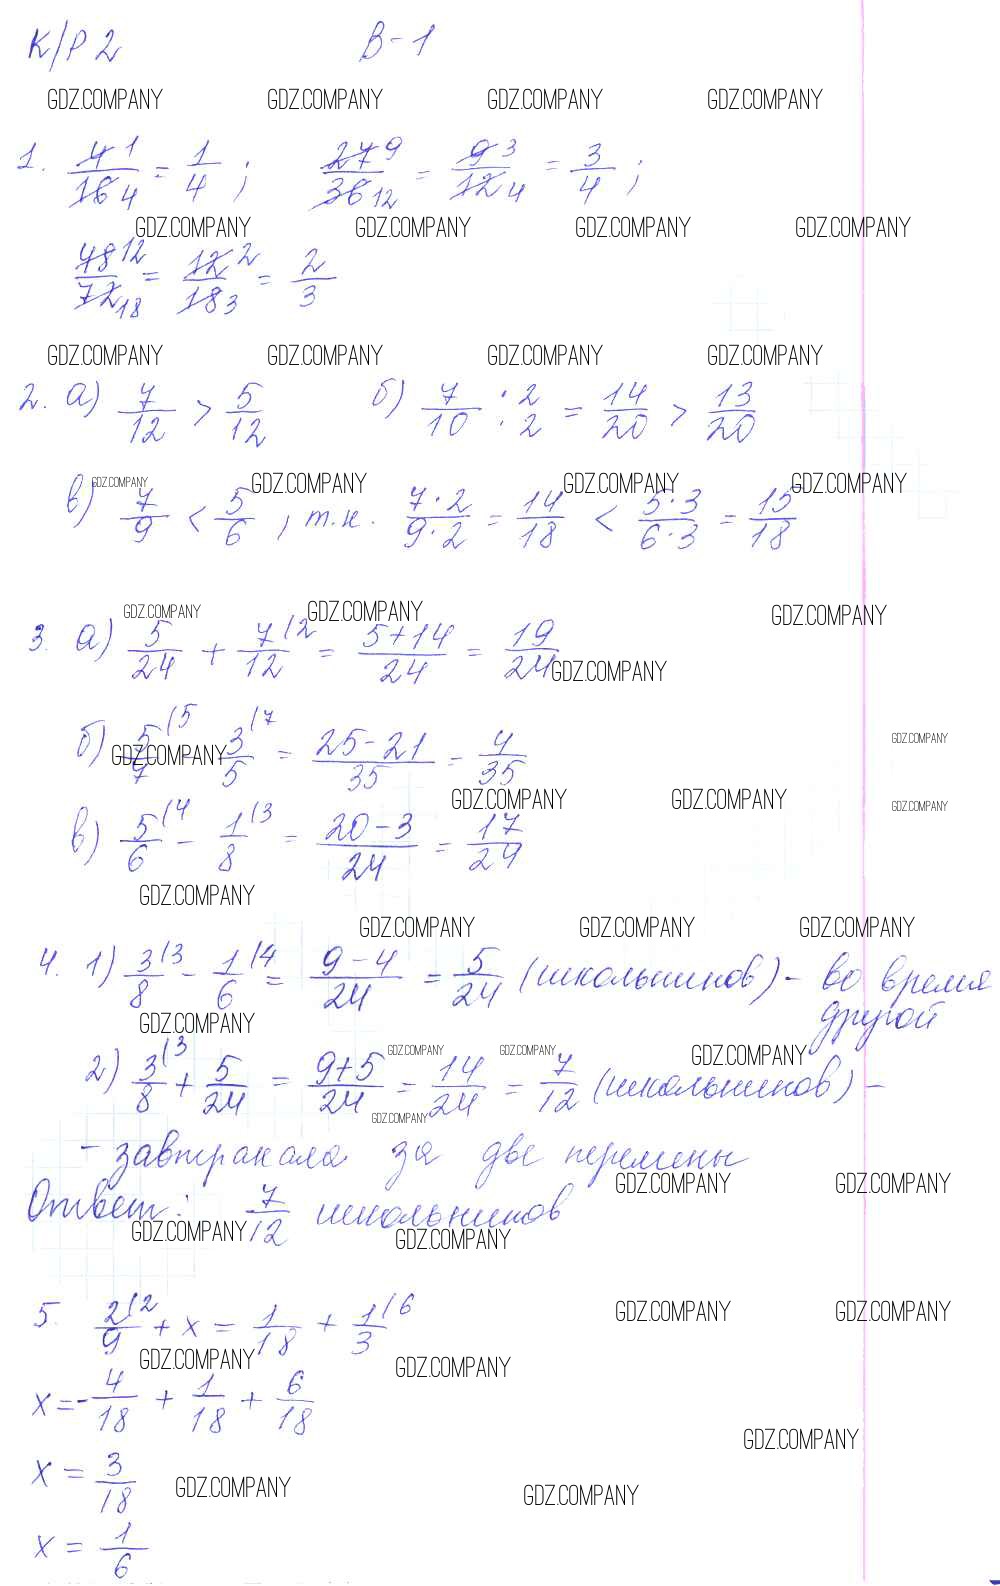 К/Р 2 В-1
GDZ.COMPANY GDZ.COMPANY GDZ.COMPANY GDZ.COMPANY
1. 4 1/16 4 = 1/4 ; 27 9/36 12 = 9 3/12 4 = 3/4 ;
GDZ.COMPANY GDZ.COMPANY GDZ.COMPANY GDZ.COMPANY
48 12/72 18 = 12 2/18 3 = 2/3
GDZ.COMPANY GDZ.COMPANY GDZ.COMPANY GDZ.COMPANY
2. а) 7/12 > 5/12 б) 7/10 : 2/2 = 14/20 > 13/20
GDZ.COMPANY GDZ.COMPANY GDZ.COMPANY GDZ.COMPANY
в) 7/9 < 5/6 ; т.к. 7·2/9·2 = 14/18 < 5·3/6·3 = 15/18
GDZ.COMPANY GDZ.COMPANY GDZ.COMPANY
3. а) 5/24 + 7/12 (2 = 5+14/24 = 19/24
GDZ.COMPANY
б) 5/7 (5 - 3/5 (7 = 25-21/35 = 4/35
GDZ.COMPANY GDZ.COMPANY
GDZ.COMPANY GDZ.COMPANY GDZ.COMPANY
в) 5/6 (4 - 1/8 (3 = 20-3/24 = 17/24
GDZ.COMPANY
GDZ.COMPANY GDZ.COMPANY GDZ.COMPANY
4. 1) 3/8 (3 - 1/6 (4 = 9-4/24 = 5/24 (школьников) - во время
другой
GDZ.COMPANY
GDZ.COMPANY GDZ.COMPANY GDZ.COMPANY
2) 3/8 (3 + 5/24 = 9+5/24 = 14/24 = 7/12 (школьников) -
GDZ.COMPANY
- завтракала за две перемены
GDZ.COMPANY GDZ.COMPANY
Ответ: 7/12 школьников
GDZ.COMPANY GDZ.COMPANY
5. 2/9 (2 + x = 1/18 + 1/3 (6
GDZ.COMPANY GDZ.COMPANY
GDZ.COMPANY GDZ.COMPANY
x = -4/18 + 1/18 + 6/18
GDZ.COMPANY
x = 3/18
GDZ.COMPANY GDZ.COMPANY
x = 1/6